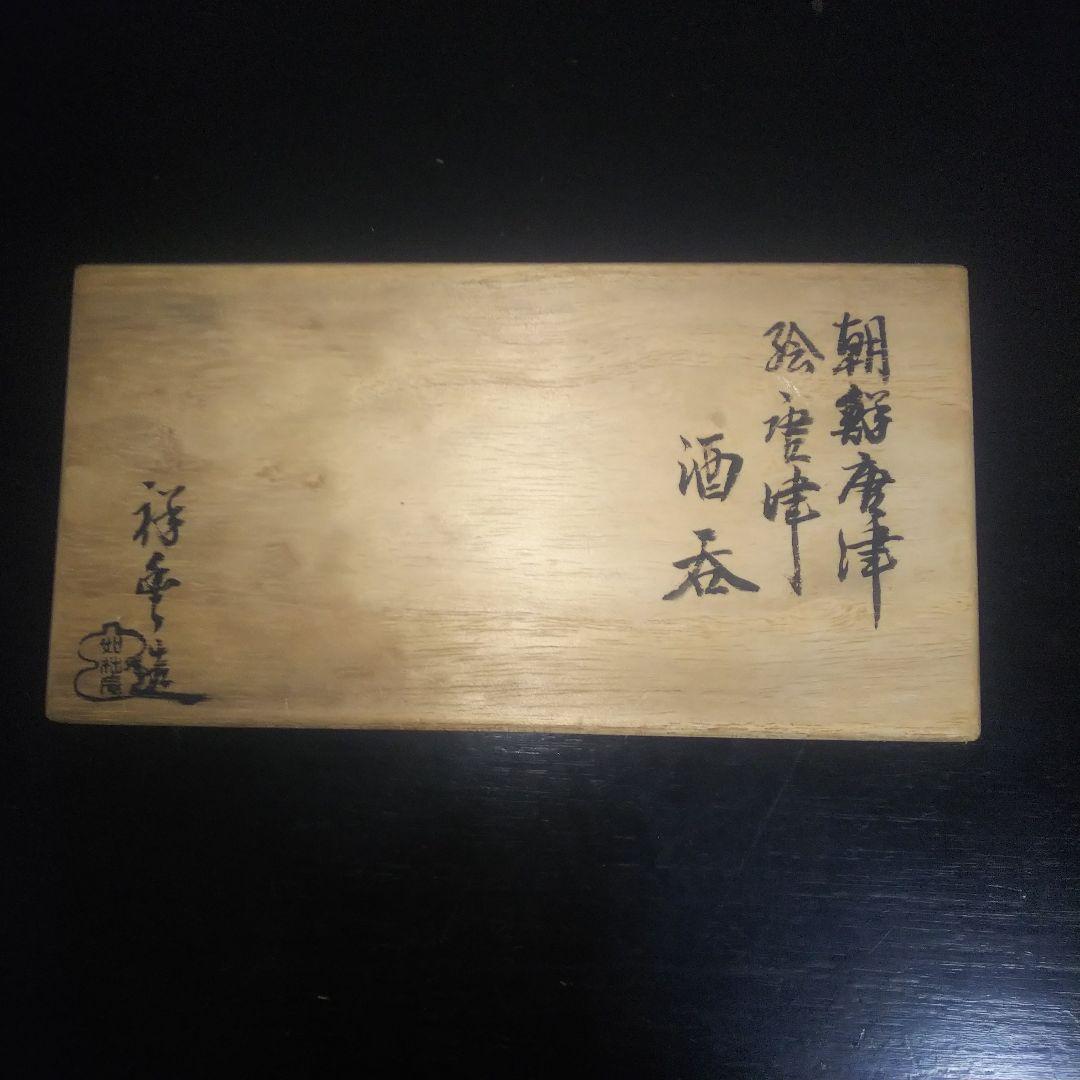 朝鮮唐津
絵唐津
酒呑
祥
造